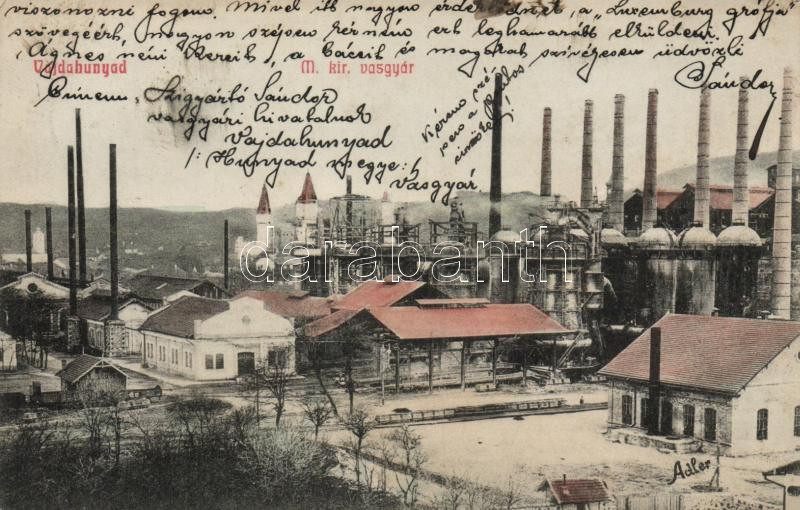 viszonozni fogom. Mivel itt nagyon érdeklődnek, a "Luxemburg grófja"
szövegéért, nagyon szépen kérném ezt leghamarább elküldeni.
Ágnes néni Kezeit, a bácsit és magokat szívesen üdvözli
Sándor
Vajdahunyad
M. kir. vasgyár
Címem: Szigyártó Sándor
vasgyári hivatalnok
Vajdahunyad
/: Hunyad megye :/
vasgyár.
darabanth.com
Adler